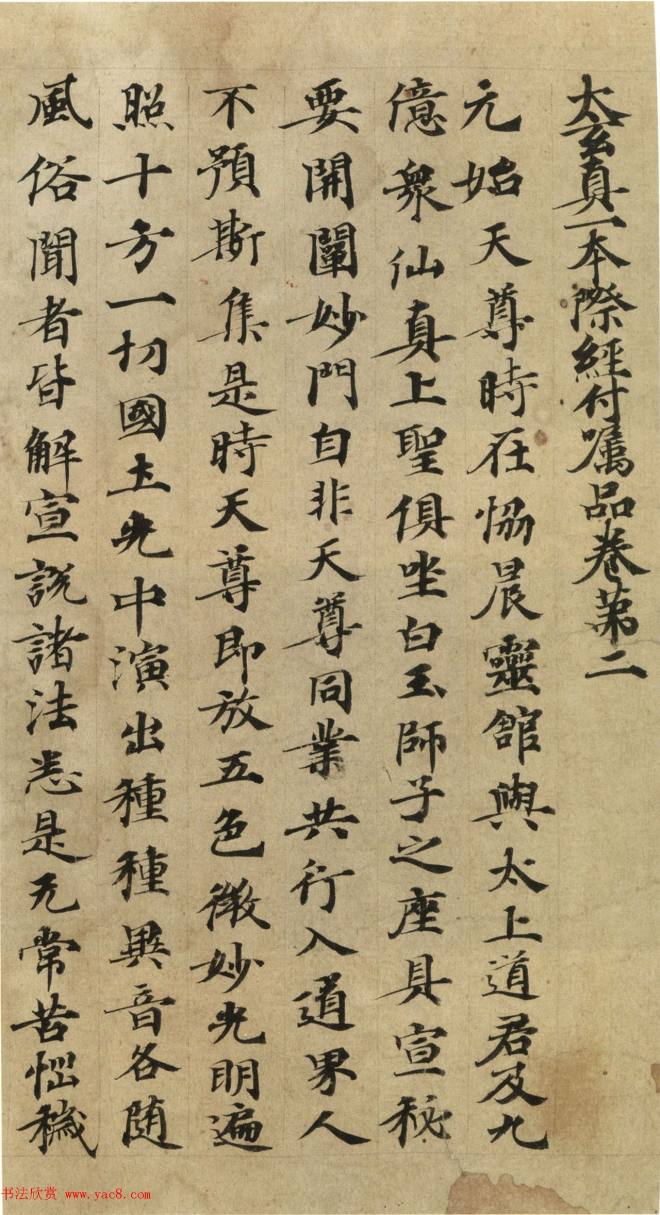 太玄真一本際經付嘱品卷第二
元始天尊時在恊晨靈舘與太上道君及九
億衆仙真上聖俱坐白玉師子之座具宣秘
要開闡妙門自非天尊同業共行入道界人
不預斯集是時天尊即放五色微妙光明遍
照十方一切國土光中演出種種異音各随
風俗聞者皆解宣説諸法悉是无常苦惱穢
书法欣赏 www.yac8.com